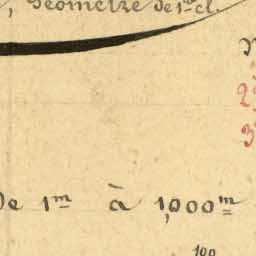 , Géomètre de 1re cl.
2
3
De 1m à 1,000m
100